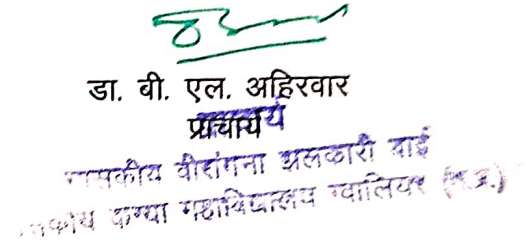 डा. बी. एल. अहिरवार
प्राचार्य
प्राचार्य
शासकीय वीरांगना झलकारी बाई
कन्या महाविद्यालय ग्वालियर (म.प्र.)